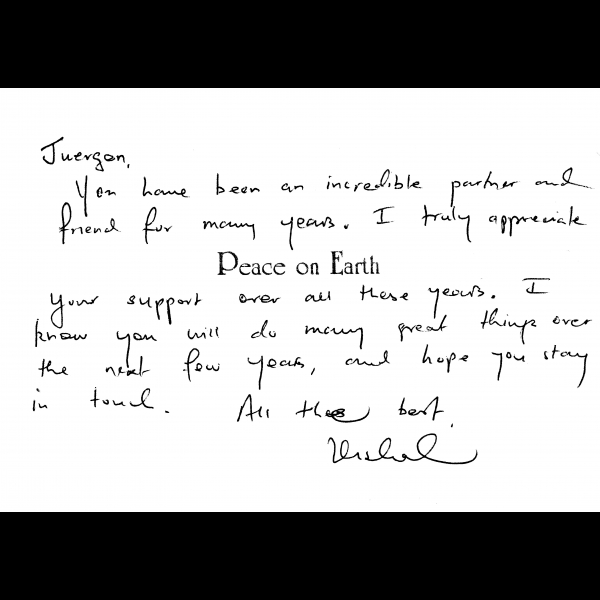 Juergen,
You have been an incredible partner and
friend for many years. I truly appreciate
Peace on Earth
your support over all these years. I
know you will do many great things over
the next few years, and hope you stay
in touch. All the best,
Vishal